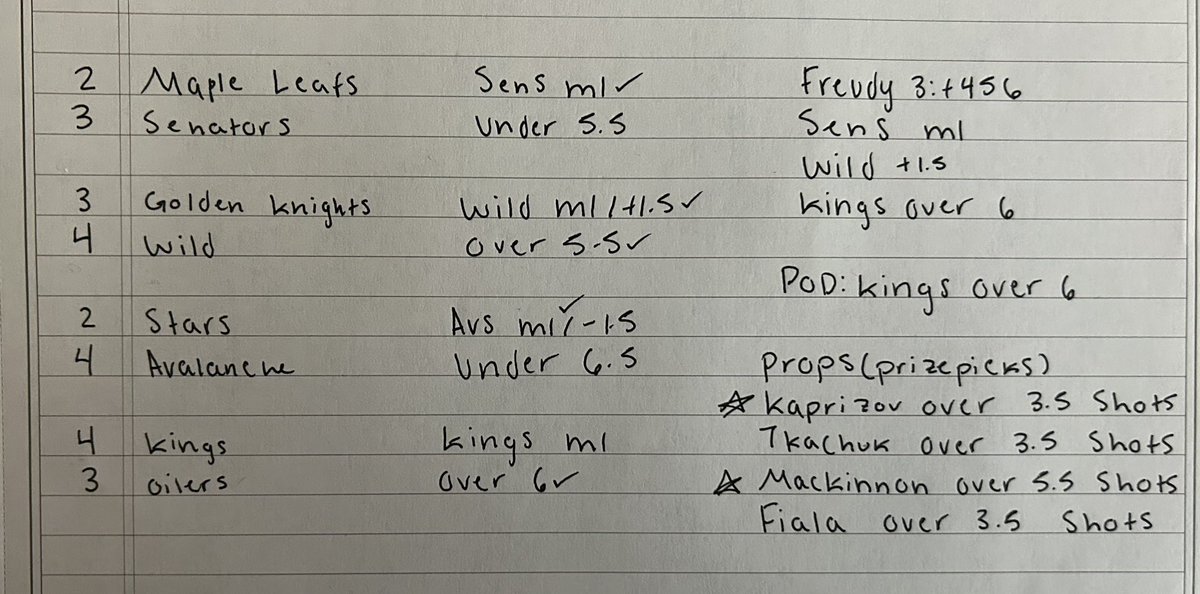 2 Maple Leafs Sens ml✓ Freddy 3:+456
3 Senators Under 5.5 Sens ml
Wild +1.5
3 Golden knights Wild ml/+1.5✓ kings over 6
4 Wild over 5.5✓
POD: kings over 6
2 Stars Avs ml✓/-1.5
4 Avalanche Under 6.5 Props(prizepicks)
☆ Kaprizov over 3.5 Shots
4 kings kings ml Tkachuk over 3.5 Shots
3 oilers over 6✓ ☆ Mackinnon over 5.5 Shots
Fiala over 3.5 Shots